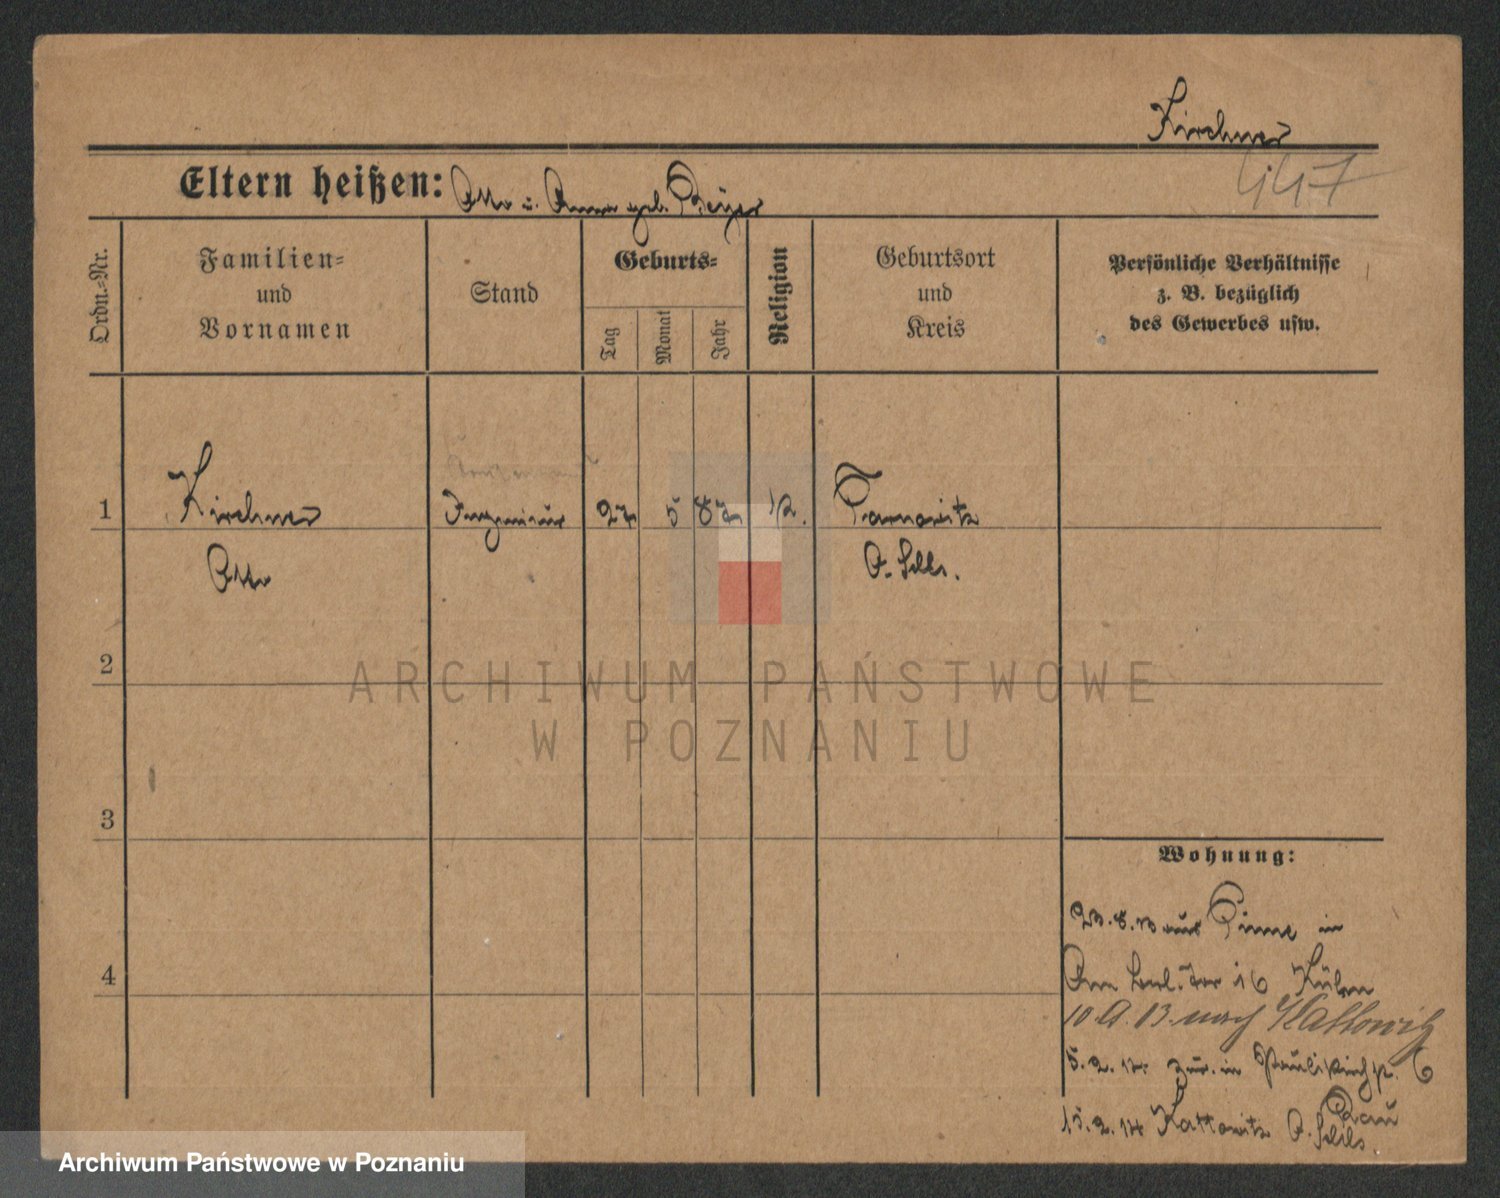 Kirchner
447
Eltern heißen: Otto u. Anna geb. Beyer
Ordn.-Nr.
Familien-
und
Vornamen
Stand
Geburts-
Tag
Monat
Jahr
Religion
Geburtsort
und
Kreis
Persönliche Verhältnisse
z. B. bezüglich
des Gewerbes usw.
1
Kirchner
Ingenieur
27
5
87
Tarnowitz
Otto
O. Schls.
2
ARCHIWUM PAŃSTWOWE
W POZNANIU
3
Wohnung:
aus Pinne in
4
Am Berl. Tor 16
10. 9. 13. nach Kattowitz
5. 2. 14. zur. in Paulikirchstr. 6
15. 2. 14 Kattowitz O. Schls.
Archiwum Państwowe w Poznaniu